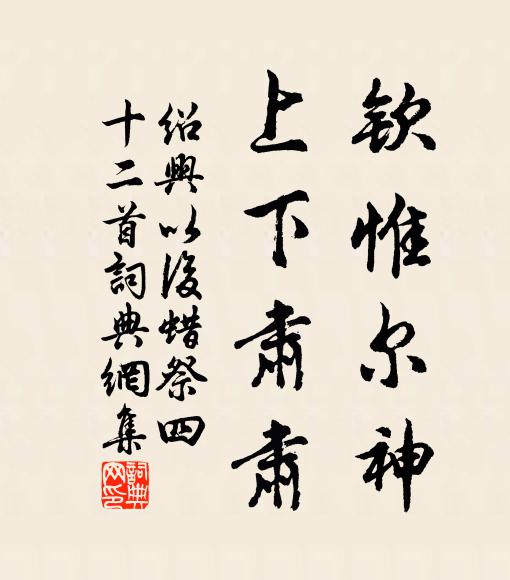 欽惟尔神
上下肅肅
紹興以後蜡祭四
十二首詞典網集
詞典
网印